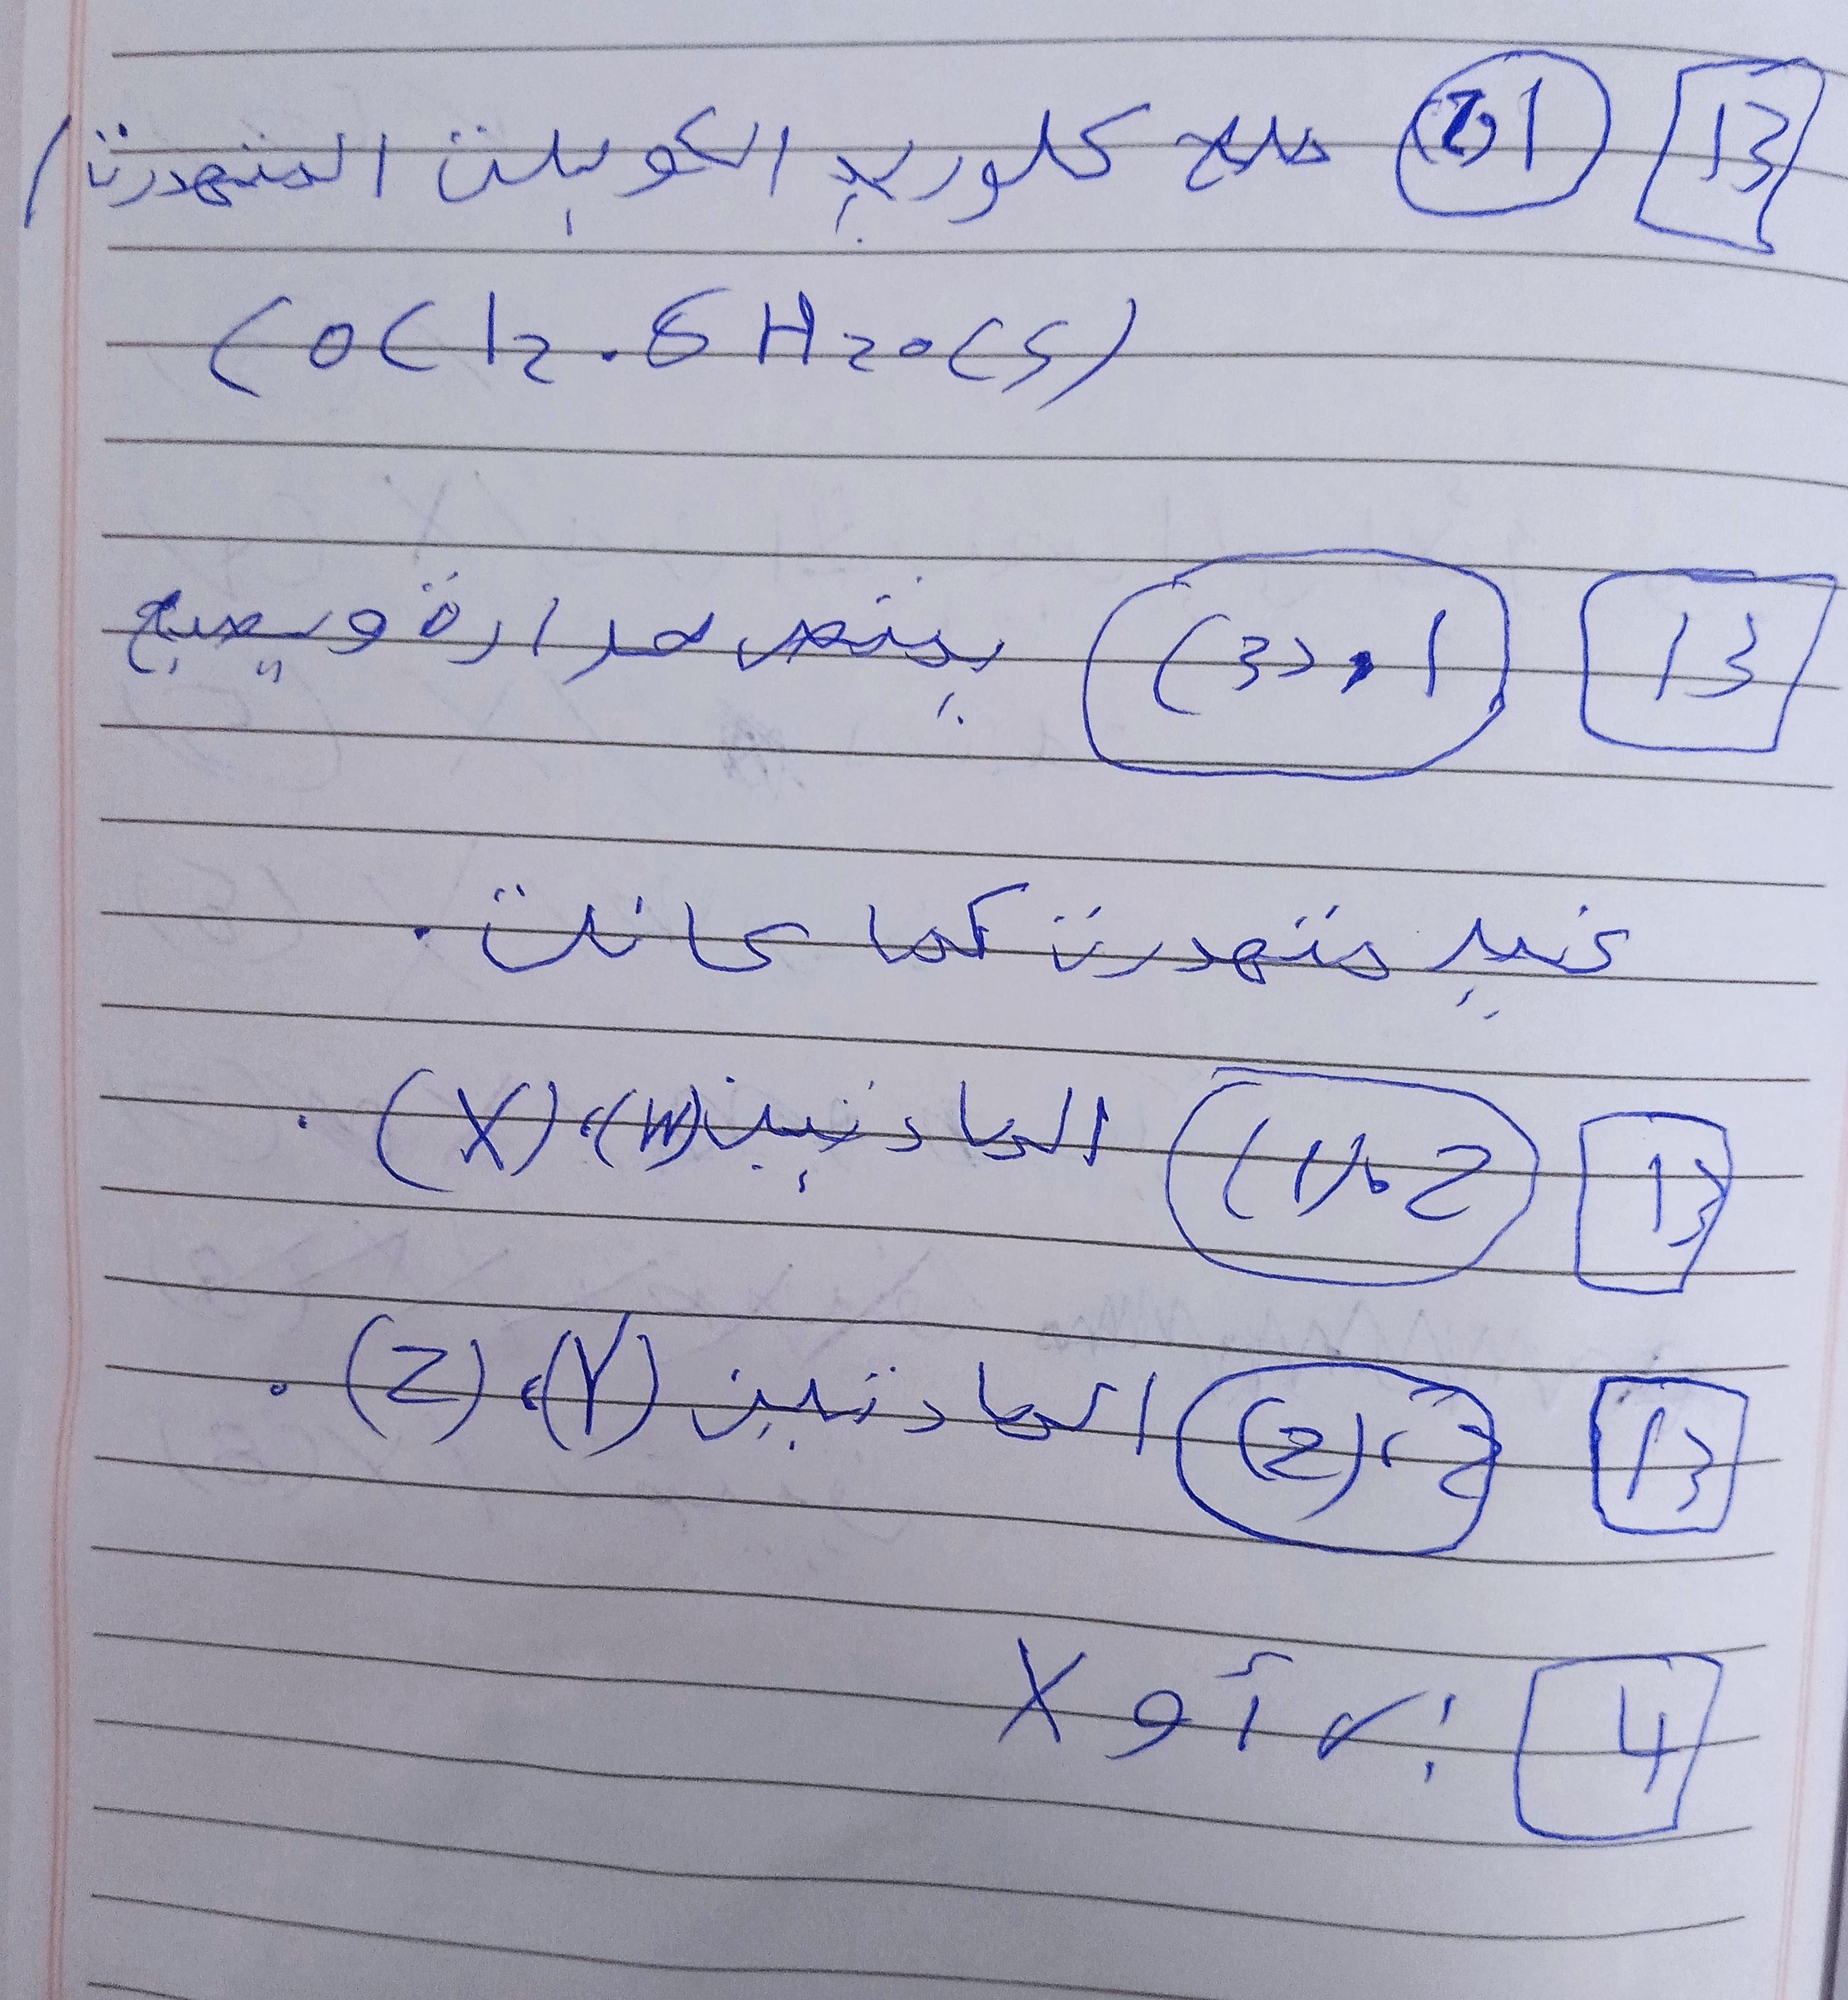 13 1،(2) ملح كلوريد الكوبلت المتهدرت /
CoCl2.6H2O(s)
13 1،(3) يمتص حرارة ويصبح
غير متهدرت كما كانت .
13 2،(1) الحادثتين (W)،(X) .
13 2،(2) الحادثتين (Y)،(Z) .
4 : أ و X